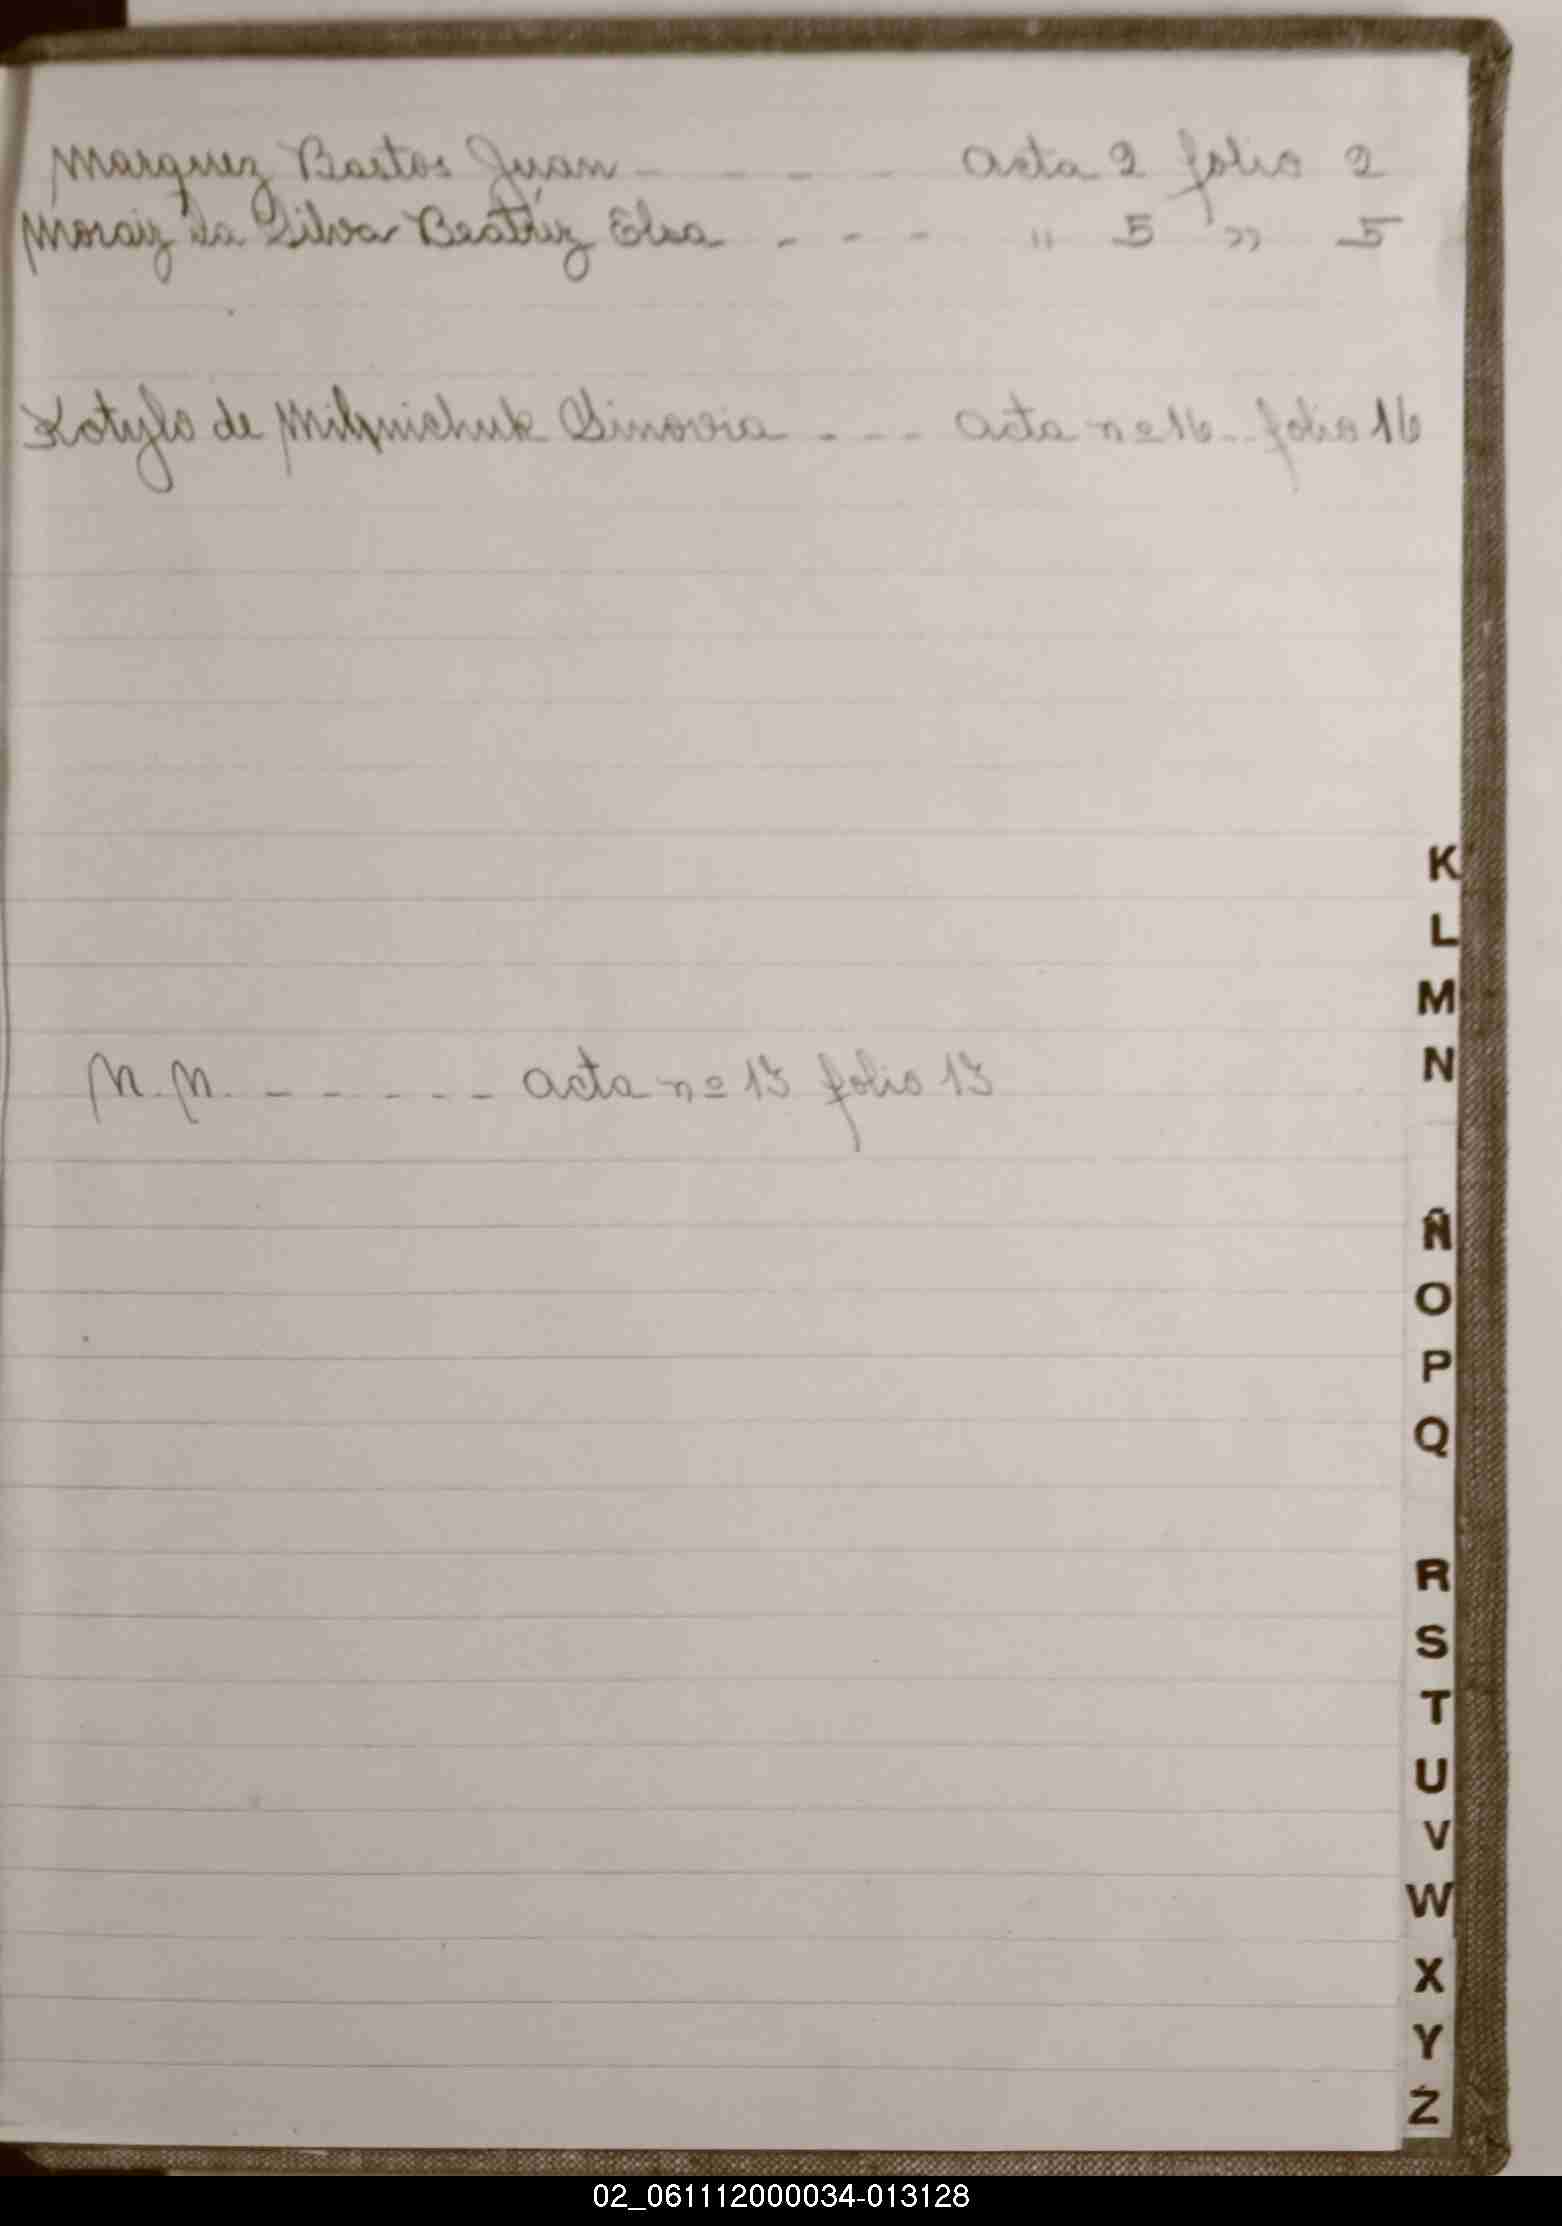 Marquez Bastos Juan - - - - acta 2 folio 2
Moraiz da Silva Beatriz Elsa - - - " 5 " 5
Kotylo de Milynichuk Sinovia - - - acta nº 16 - - folio 16
N. N. - - - - - - acta nº 13 folio 13
K
L
M
N
Ñ
O
P
Q
R
S
T
U
V
W
X
Y
Z
02_061112000034-013128